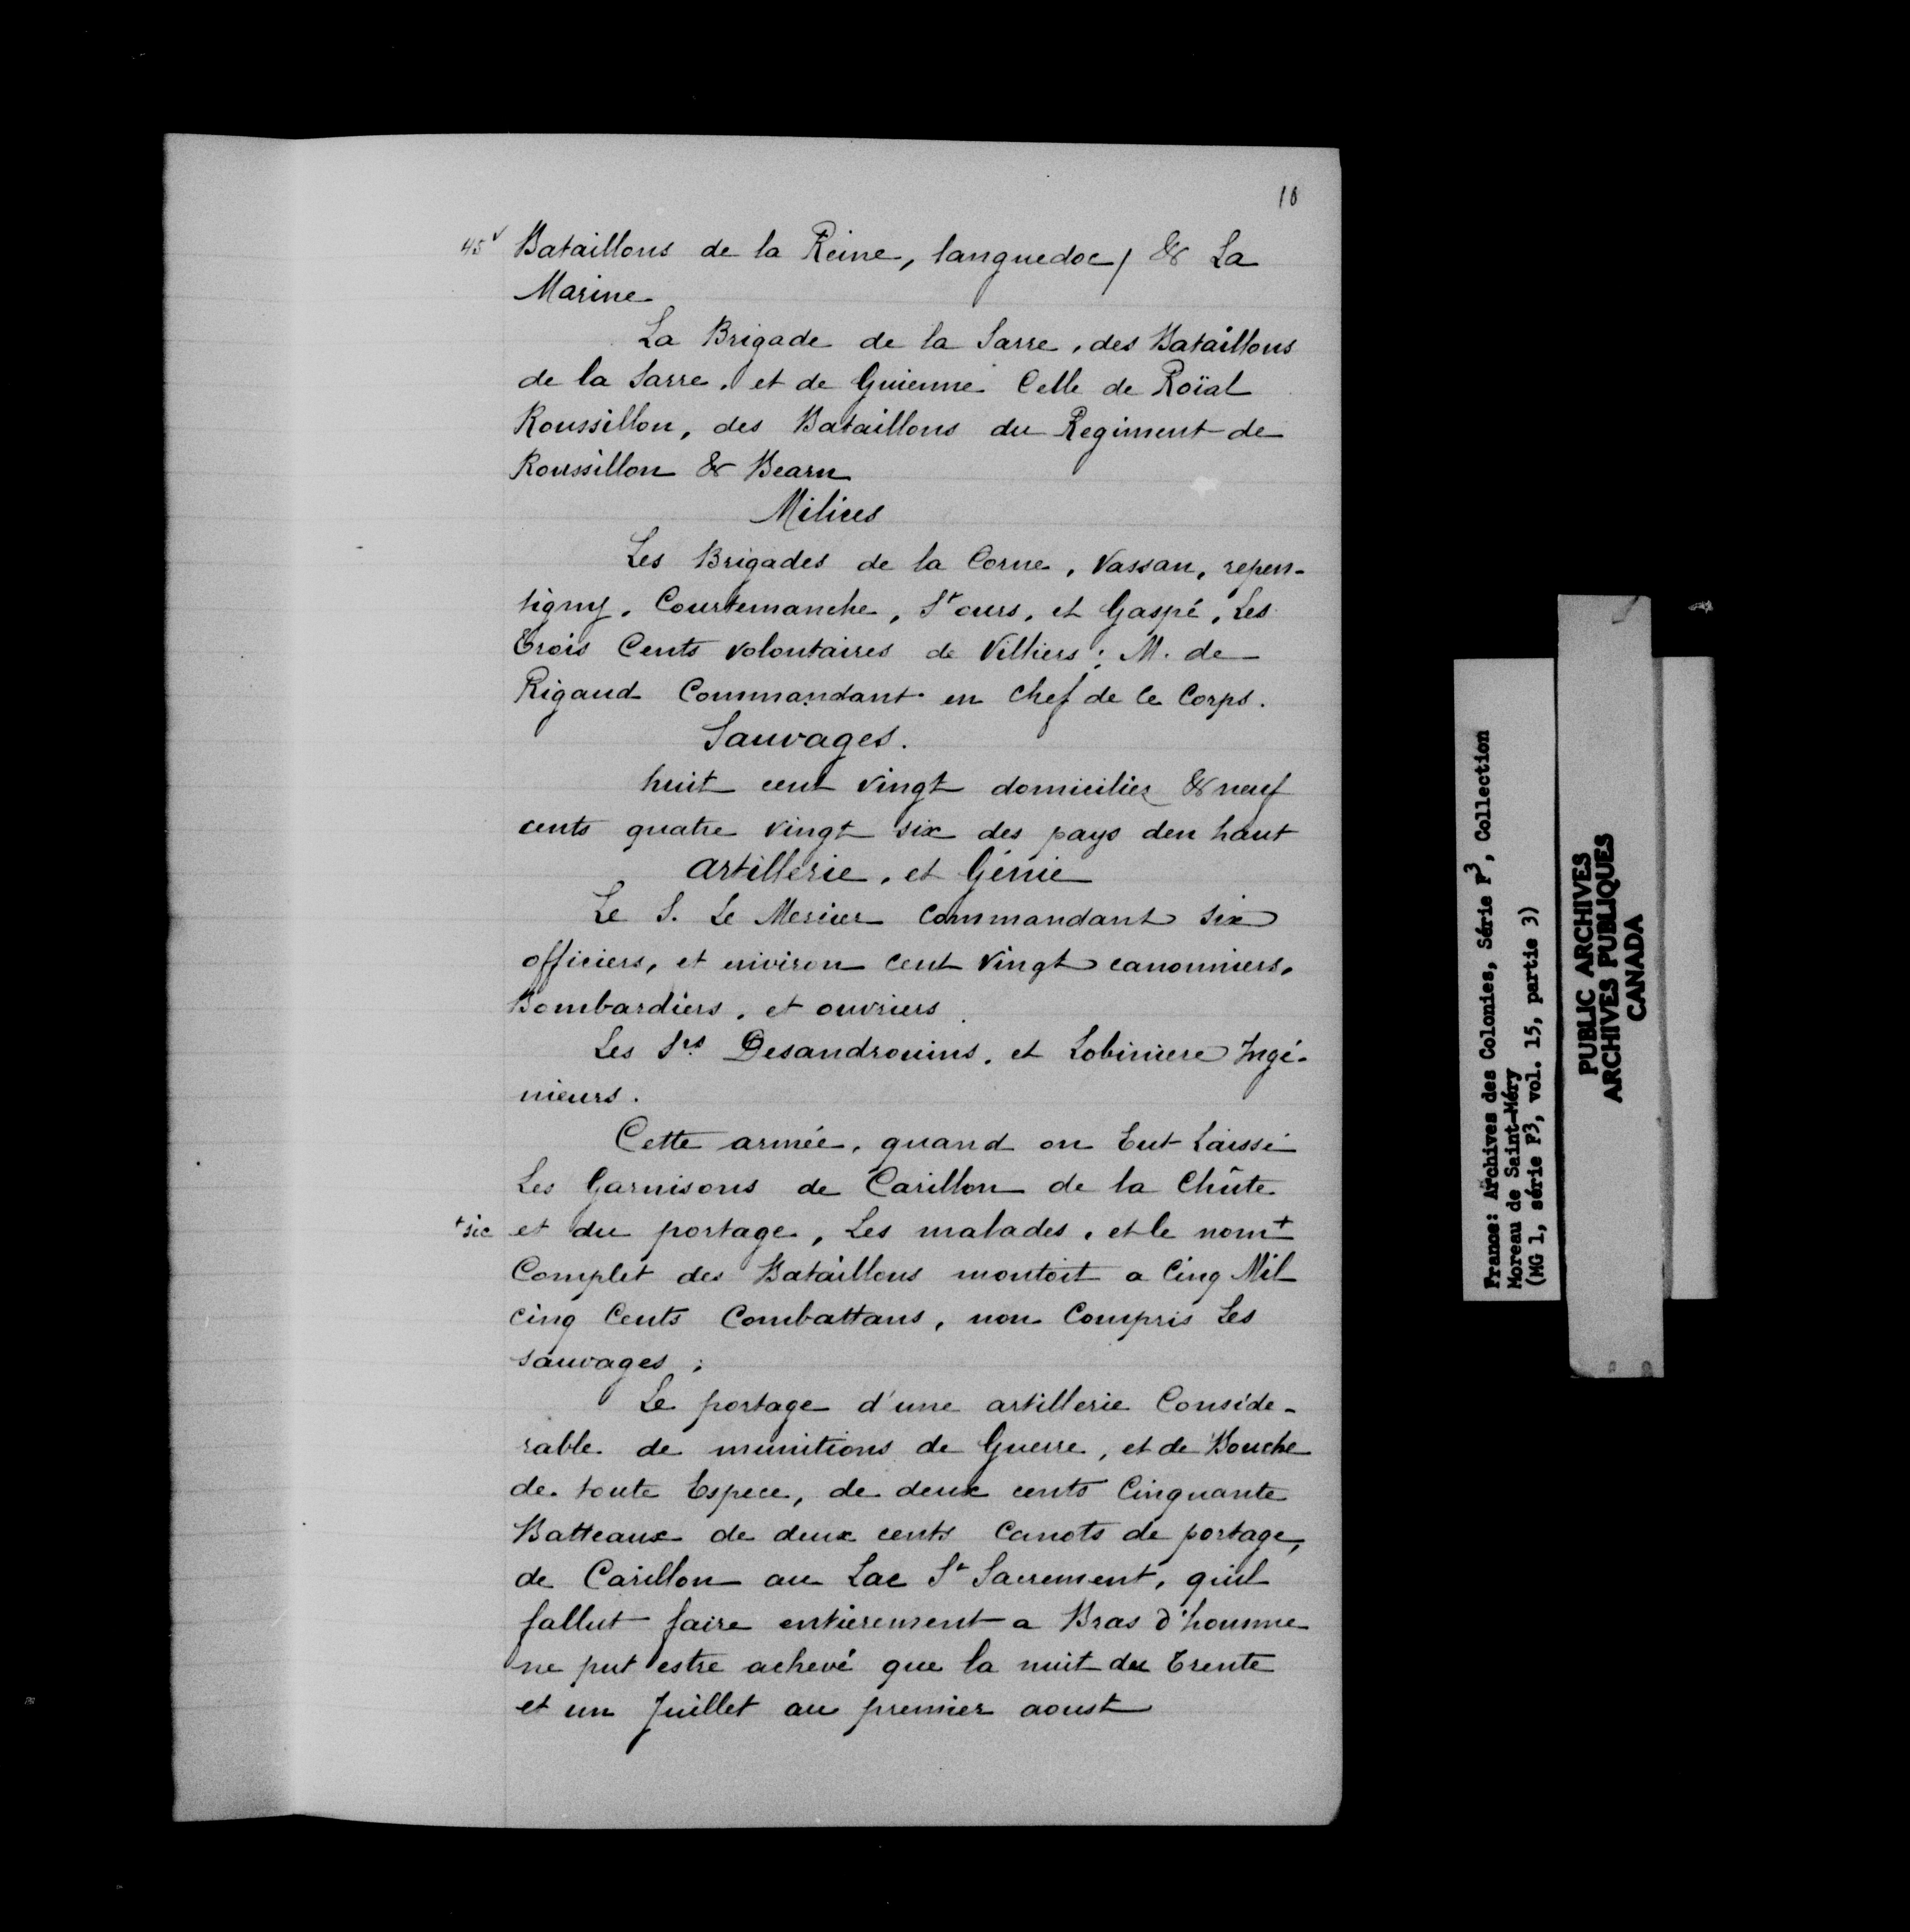 18
45v Bataillons de la Reine, languedoc, & La
Marine
La Brigade de la Sarre, des Bataillons
de la Sarre, et de Guienne Celle de Roïal
Roussillon, des Bataillons du Regiment de
Roussillon & Bearn
Milices
Les Brigades de la Corne, Vassan, repen-
tigny, Courtemanche, St ours, et Gaspé, Les
Trois Cents volontaires de Villiers; M. de
Rigaud Commandant en chef de Ce Corps.
Sauvages.
huit cent vingt domiciliez & neuf
cents quatre vingt six des pays den haut
artillerie, et Génie
Le S. Le Mercier Commandant six
officiers, et environ cent vingt canonniers,
Bombardiers, et ouvriers
Les Srs Desandrouins, et Lobiniere Ingé-
nieurs.
Cette armée, quand on Eut Laissé
Les Garnisons de Carillon de la Chûte
+sic et du portage, Les malades, et le nom+
Complet des Bataillons montoit a Cinq Mil
cinq Cents Combattans, non Compris Les
sauvages;
Le portage d'une artillerie Conside-
rable de munitions de Guerre, et de Bouche
de toute Espece, de deux cents Cinquante
Batteaux de deux cents Canots de portage,
de Carillon au Lac St Sacrement, quil
fallut faire entierement a Bras d'homme
ne put estre achevé que la nuit du Trente
et un Juillet au premier aoust
France: Archives des Colonies, Série F3, Collection
Moreau de Saint-Méry
(MG 1, série F3, vol. 15, partie 3)
PUBLIC ARCHIVES
ARCHIVES PUBLIQUES
CANADA